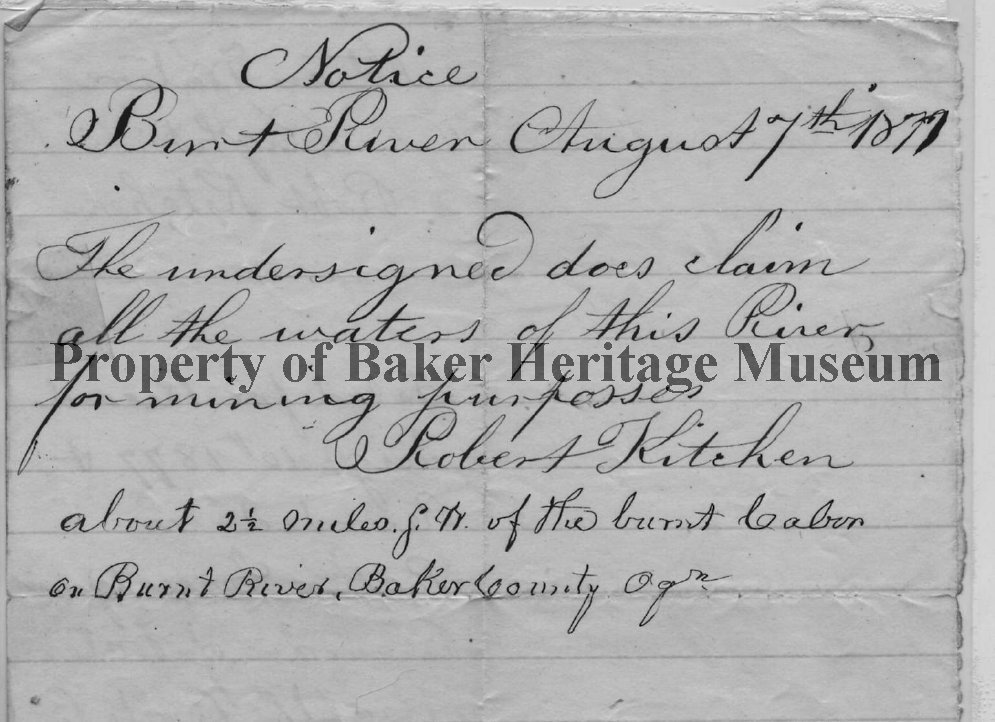 Notice
Burnt River August 7th 1877
The undersigned does claim
all the waters of this River
Property of Baker Heritage Museum
for mining purposses
Robert Kitchen
about 2½ miles. S. W. of the burnt Cabon
on Burnt River, Baker County Ogn